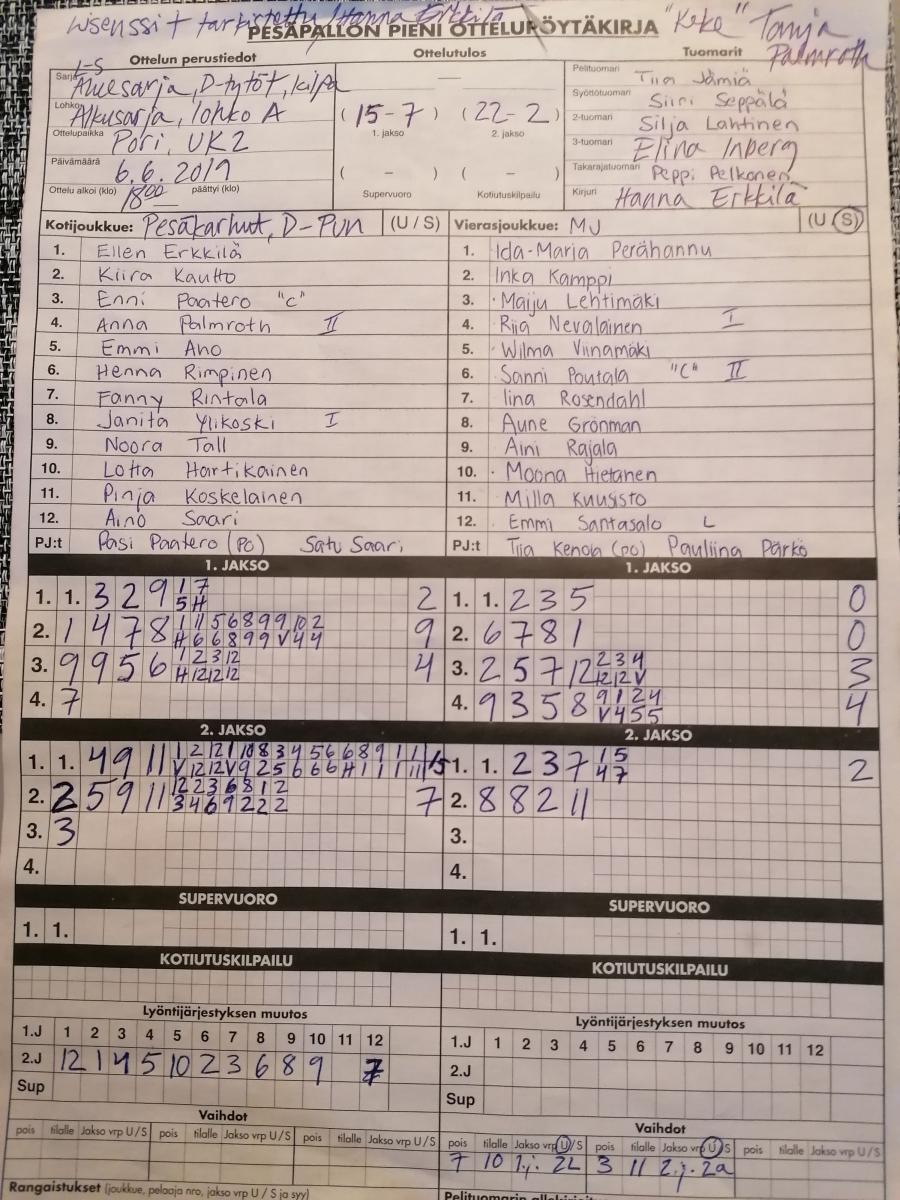 Lisenssit tarkistettu / Hanna Erkkilä "Keke" Tanja Palmroth
PESÄPALLON PIENI OTTELUPÖYTÄKIRJA
Ottelun perustiedot
Sarja L-S Aluesarja, D-tytöt, kilpa
Lohko Alkusarja, lohko A
Ottelupaikka Pori, UK2
Päivämäärä 6.6.2019
Ottelu alkoi (klo) 18 00 päättyi (klo)
Ottelutulos
(15-7) (22-2)
1. jakso 2. jakso
( - ) ( - )
Supervuoro Kotiutuskilpailu
Tuomarit
Pelituomari Tiia Jämiä
Syöttötuomari Siiri Seppälä
2-tuomari Silja Lahtinen
3-tuomari Elina Inberg
Takarajatuomari Peppi Pelkonen
Kirjuri Hanna Erkkilä
Kotijoukkue: Pesäkarhut, D-Pun (U / S)
1. Ellen Erkkilä
2. Kiira Kautto
3. Enni Paatero "C"
4. Anna Palmroth II
5. Emmi Aho
6. Henna Rimpinen
7. Fanny Rintala
8. Janita Ylikoski I
9. Noora Tall
10. Lotta Hartikainen
11. Pinja Koskelainen
12. Aino Saari
PJ:t Pasi Paatero (PO) Satu Saari
Vierasjoukkue: MJ (U / S)
1. Ida-Maria Perähannu
2. Inka Kamppi
3. Maiju Lehtimäki
4. Riia Nevalainen I
5. Wilma Viinamäki
6. Sanni Poutala "C" II
7. Iina Rosendahl
8. Aune Grönman
9. Aini Rajala
10. Moona Hietanen
11. Milla Kuusisto
12. Emmi Santasalo L
PJ:t Tiia Kenola (PO) Pauliina Pärkö
1. JAKSO
1. 1. 3 2 9 1 7 2
5 H
2. 1 4 7 8 1 11 5 6 8 9 9 10 2 9
H 6 6 8 9 9 V 4 4
3. 9 9 5 6 1 2 3 12 4
H 12 12 12
4. 7
1. JAKSO
1. 1. 2 3 5 0
2. 6 7 8 1 0
3. 2 5 7 12 2 3 4 3
12 12 V
4. 9 3 5 8 9 1 2 4 4
V 4 5 5
2. JAKSO
1. 1. 4 9 11 1 2 12 1 10 8 3 4 5 6 6 8 9 1 1 15
V 12 12 V 9 2 5 6 6 6 H 1 1 1 11
2. 2 5 9 11 12 2 3 6 8 1 2 7
3 4 6 9 2 2 2
3. 3
4.
2. JAKSO
1. 1. 2 3 7 1 5 2
4 7
2. 8 8 2 11
3.
4.
SUPERVUORO
1. 1.
SUPERVUORO
1. 1.
KOTIUTUSKILPAILU
KOTIUTUSKILPAILU
Lyöntijärjestyksen muutos
1.J 1 2 3 4 5 6 7 8 9 10 11 12
2.J 12 1 4 5 10 2 3 6 8 9 7
Sup
Lyöntijärjestyksen muutos
1.J 1 2 3 4 5 6 7 8 9 10 11 12
2.J
Sup
Vaihdot
pois tilalle Jakso vrp U / S pois tilalle Jakso vrp U / S pois tilalle Jakso vrp U / S
Vaihdot
pois tilalle Jakso vrp U / S pois tilalle Jakso vrp U / S pois tilalle Jakso vrp U / S
7 10 1.j. 2L 3 11 2.j. 2a
Rangaistukset (joukkue, pelaaja nro, jakso vrp U / S ja syy)
Pelituomarin allekirjoitus